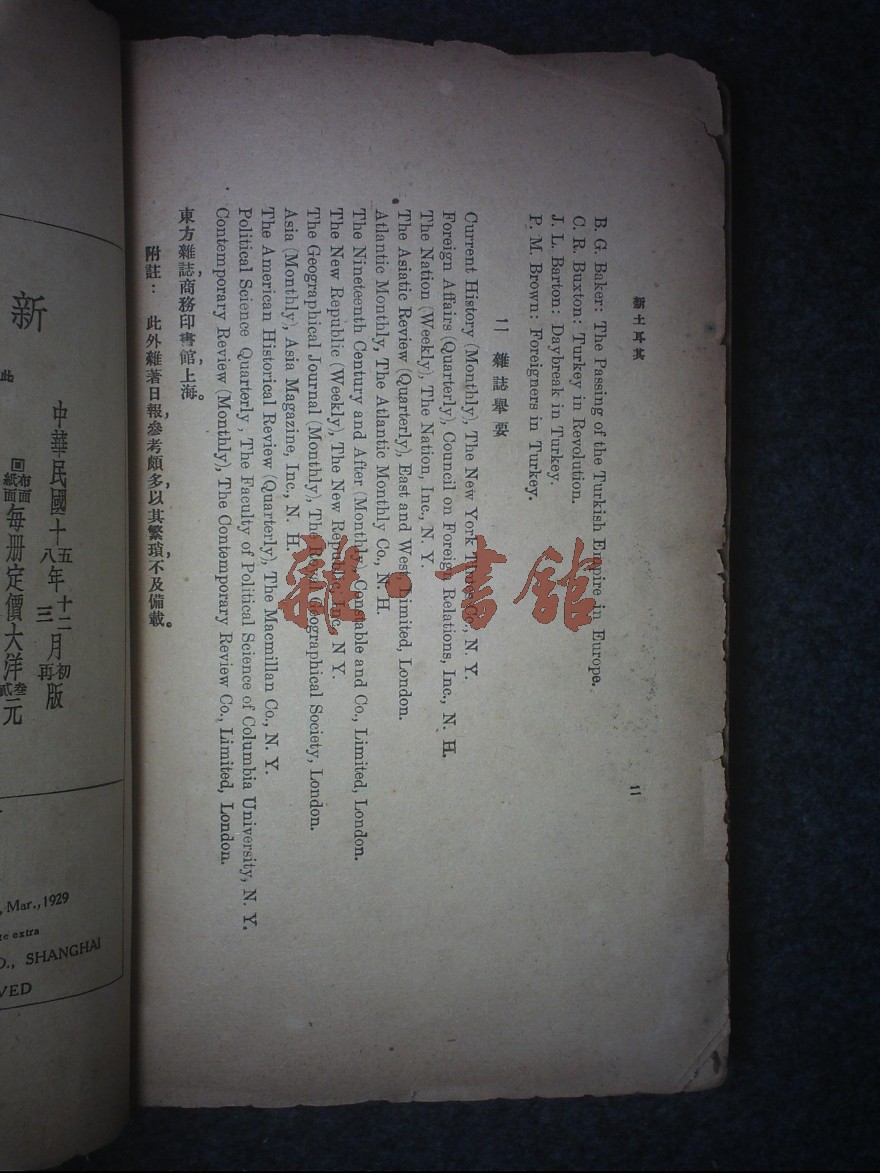 新土耳其
二
B. G. Baker: The Passing of the Turkish Empire in Europe.
C. R. Buxton: Turkey in Revolution.
J. L. Barton: Daybreak in Turkey.
P. M. Brown: Foreigners in Turkey.
二 雜誌舉要
Current History (Monthly), The New York Times Co., N. Y.
Foreign Affairs (Quarterly), Council on Foreign Relations, Inc., N. H.
The Nation (Weekly), The Nation, Inc., N. Y.
The Asiatic Review (Quarterly), East and West, Limited, London.
Atlantic Monthly, The Atlantic Monthly Co., N. H.
The Nineteenth Century and After (Monthly), Constable and Co., Limited, London.
The New Republic (Weekly), The New Republic, Inc., N. Y.
The Geographical Journal (Monthly), The Royal Geographical Society, London.
Asia (Monthly), Asia Magazine, Inc., N. H.
The American Historical Review (Quarterly), The Macmillan Co., N. Y.
Political Science Quarterly, The Faculty of Political Science of Columbia University, N. Y.
Contemporary Review (Monthly), The Contemporary Review Co., Limited, London.
東方雜誌,商務印書館,上海。
附註: 此外雜著日報,參考頗多,以其繁瑣,不及備載。
中華民國十五年十二月初版
十八年三月再版
布面紙面每册定價大洋叁貳元
新
此
, Mar., 1929
extra
., SHANGHAI
VED
雜·書館